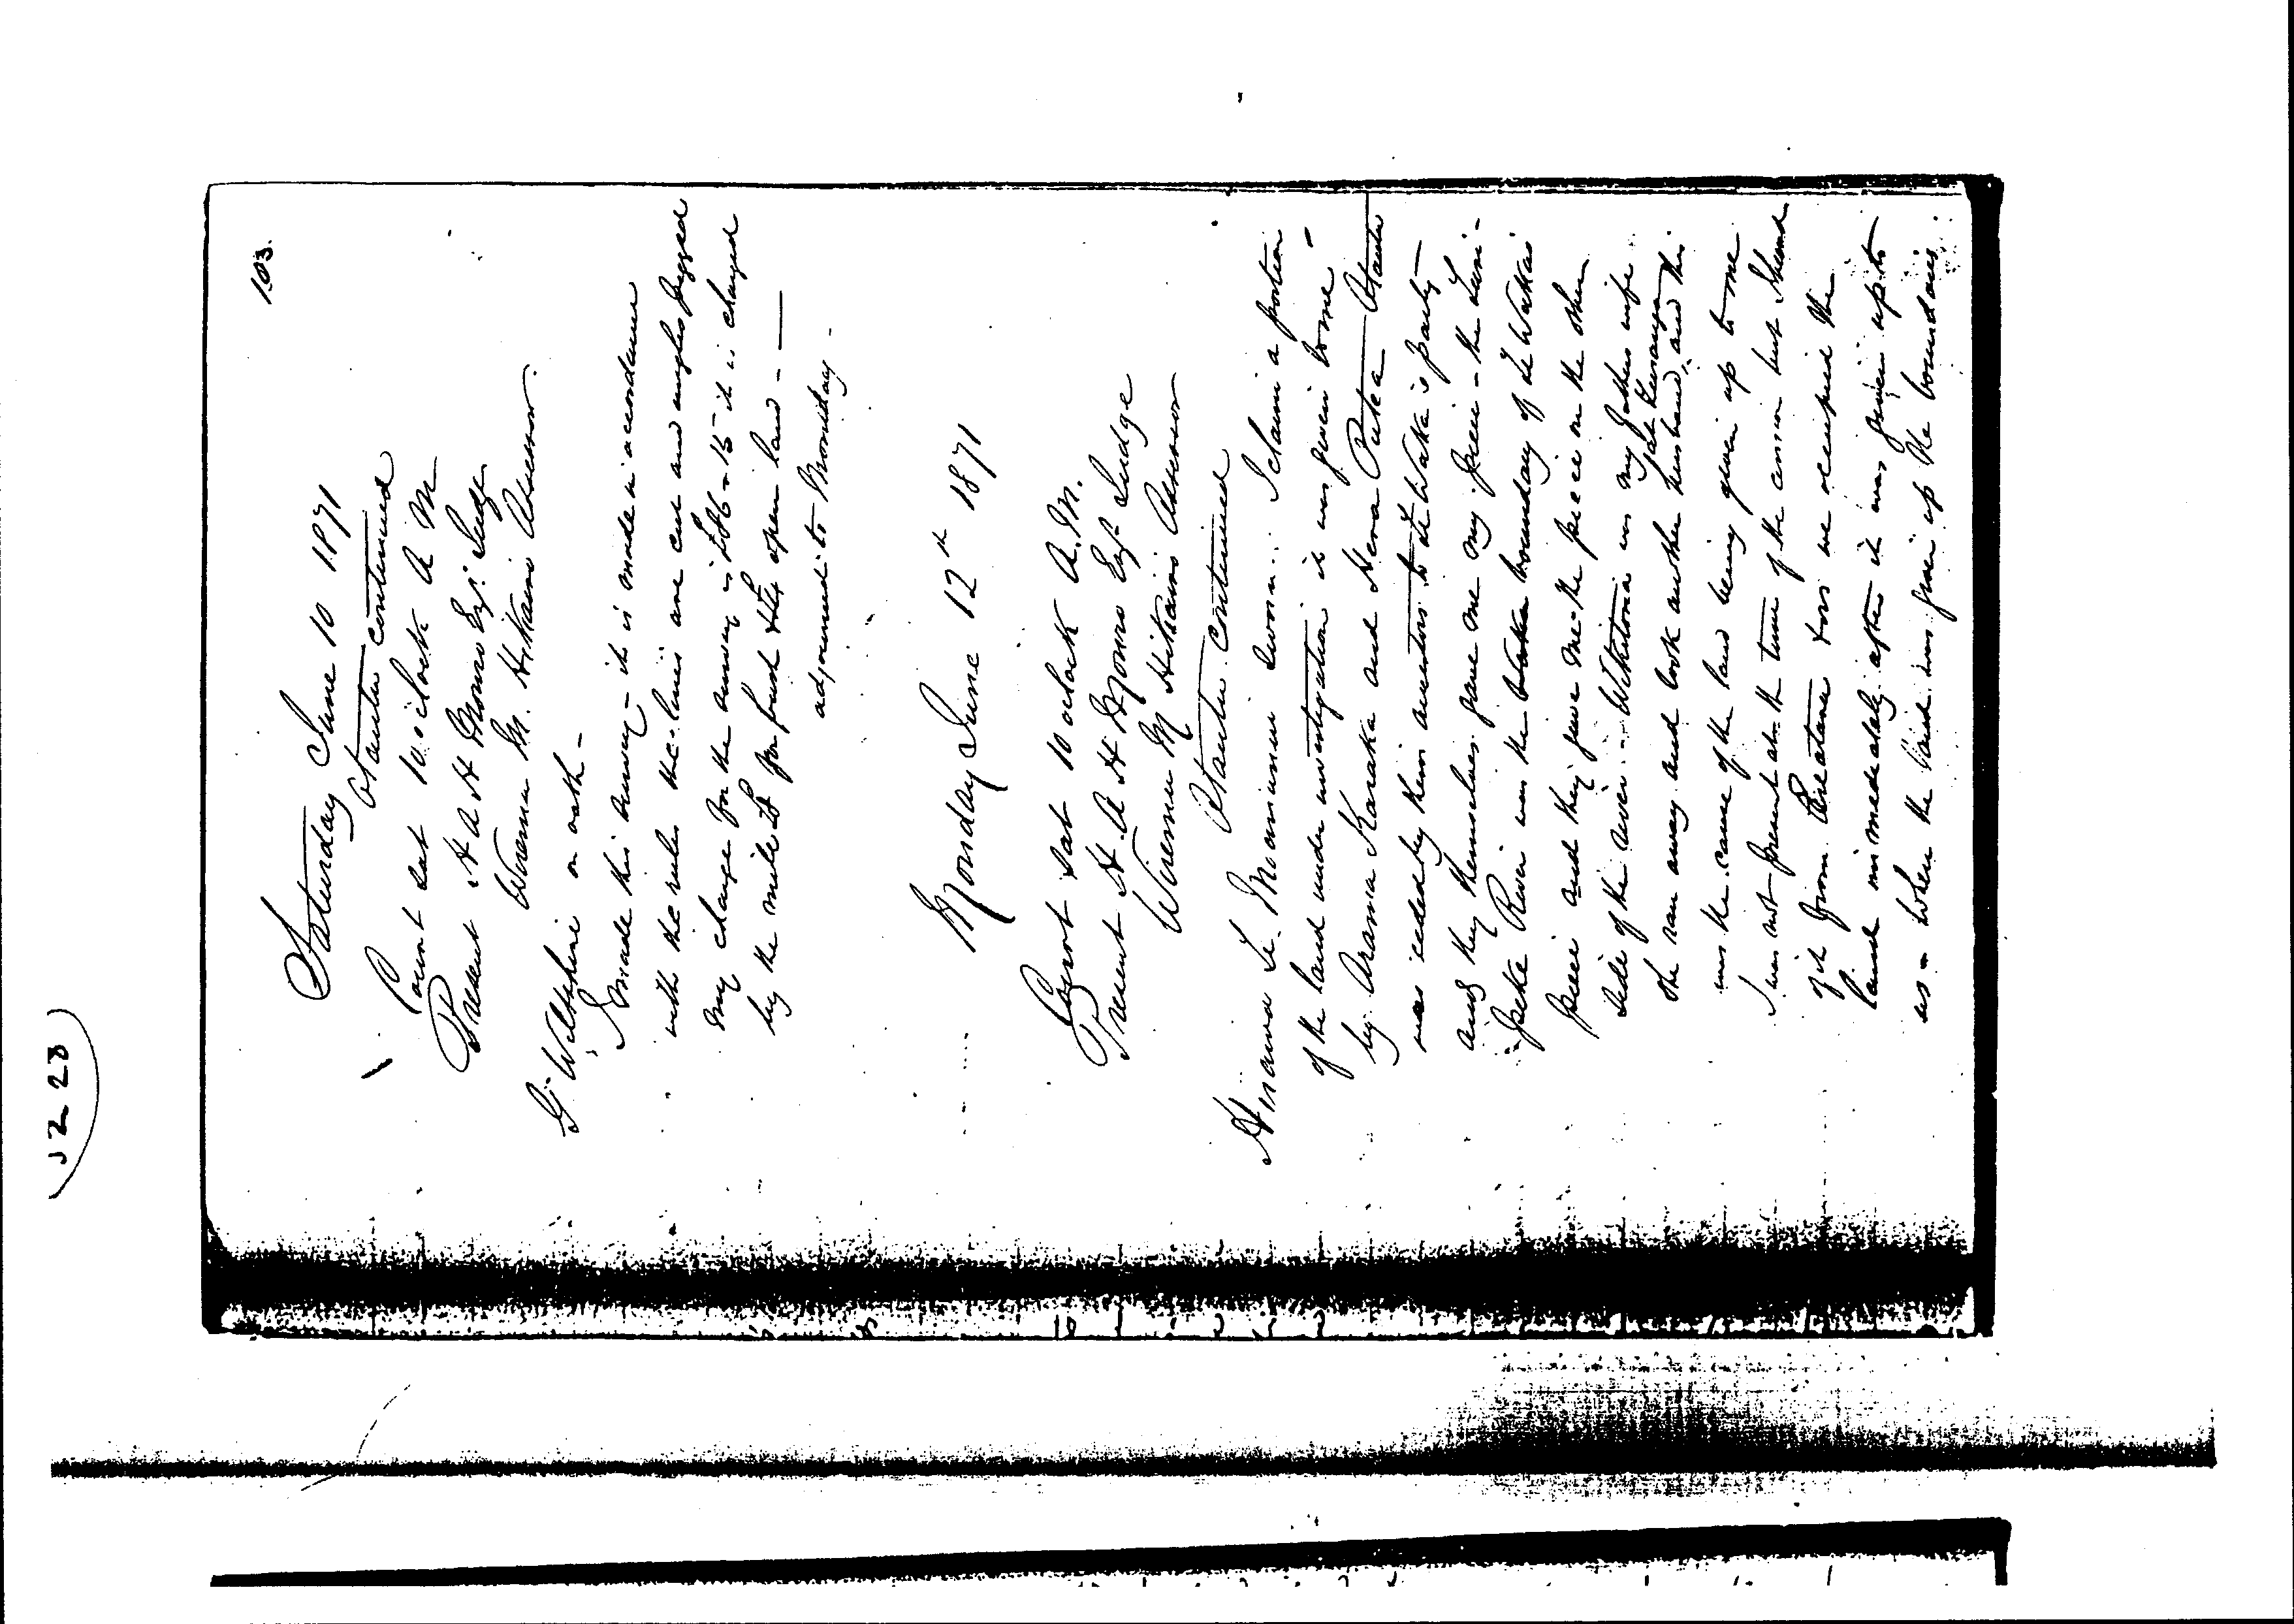 103.
Saturday June 10 1871
Otautu continued
Court sat 10 oclock A M
Present H A H Monro Esq. Judge
Wiremu M. Hikairo Assessor
G. Wiltshire on oath -
I made this survey - it is made in accordance
with the rules the lines are cut and angles pegged
my charge for the survey is it is charged
by the mile for bush open land -
adjourned to Monday -
Monday June 12th 1871
Court sat 10 oclock A.M.
Present H A H Monro Esq. Judge
Wiremu M Hikairo Assessor
Otautu continued
Hirama Te sworn. I claim a portion
of the land under investigation it was given to me -
by Arama Karaka and Hera Putea Otautu
was ceded by their ancestors to Te Waka's party -
and they themselves gave me my piece - the
River was the boundary of Te Waka's
piece and they gave me the piece on the other
side of the river - Wikitoria was my fathers wife
she ran away and took another husband and this
was the cause of the land being given up to me
I was not present at the time of the cession but I heard
of it from we occupied the
land immediately after it was given up to
us - when the land was given up the boundaries
J 223